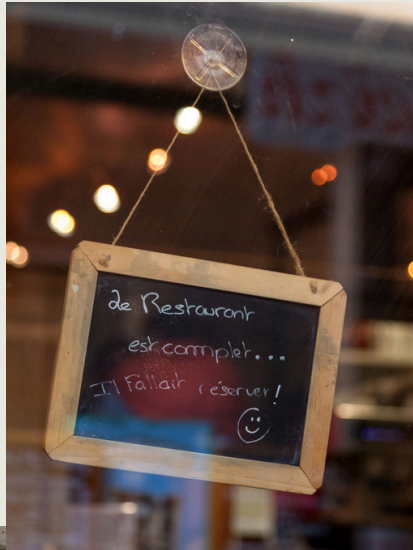 Le Restaurant
est complet...
Il Fallait réserver!